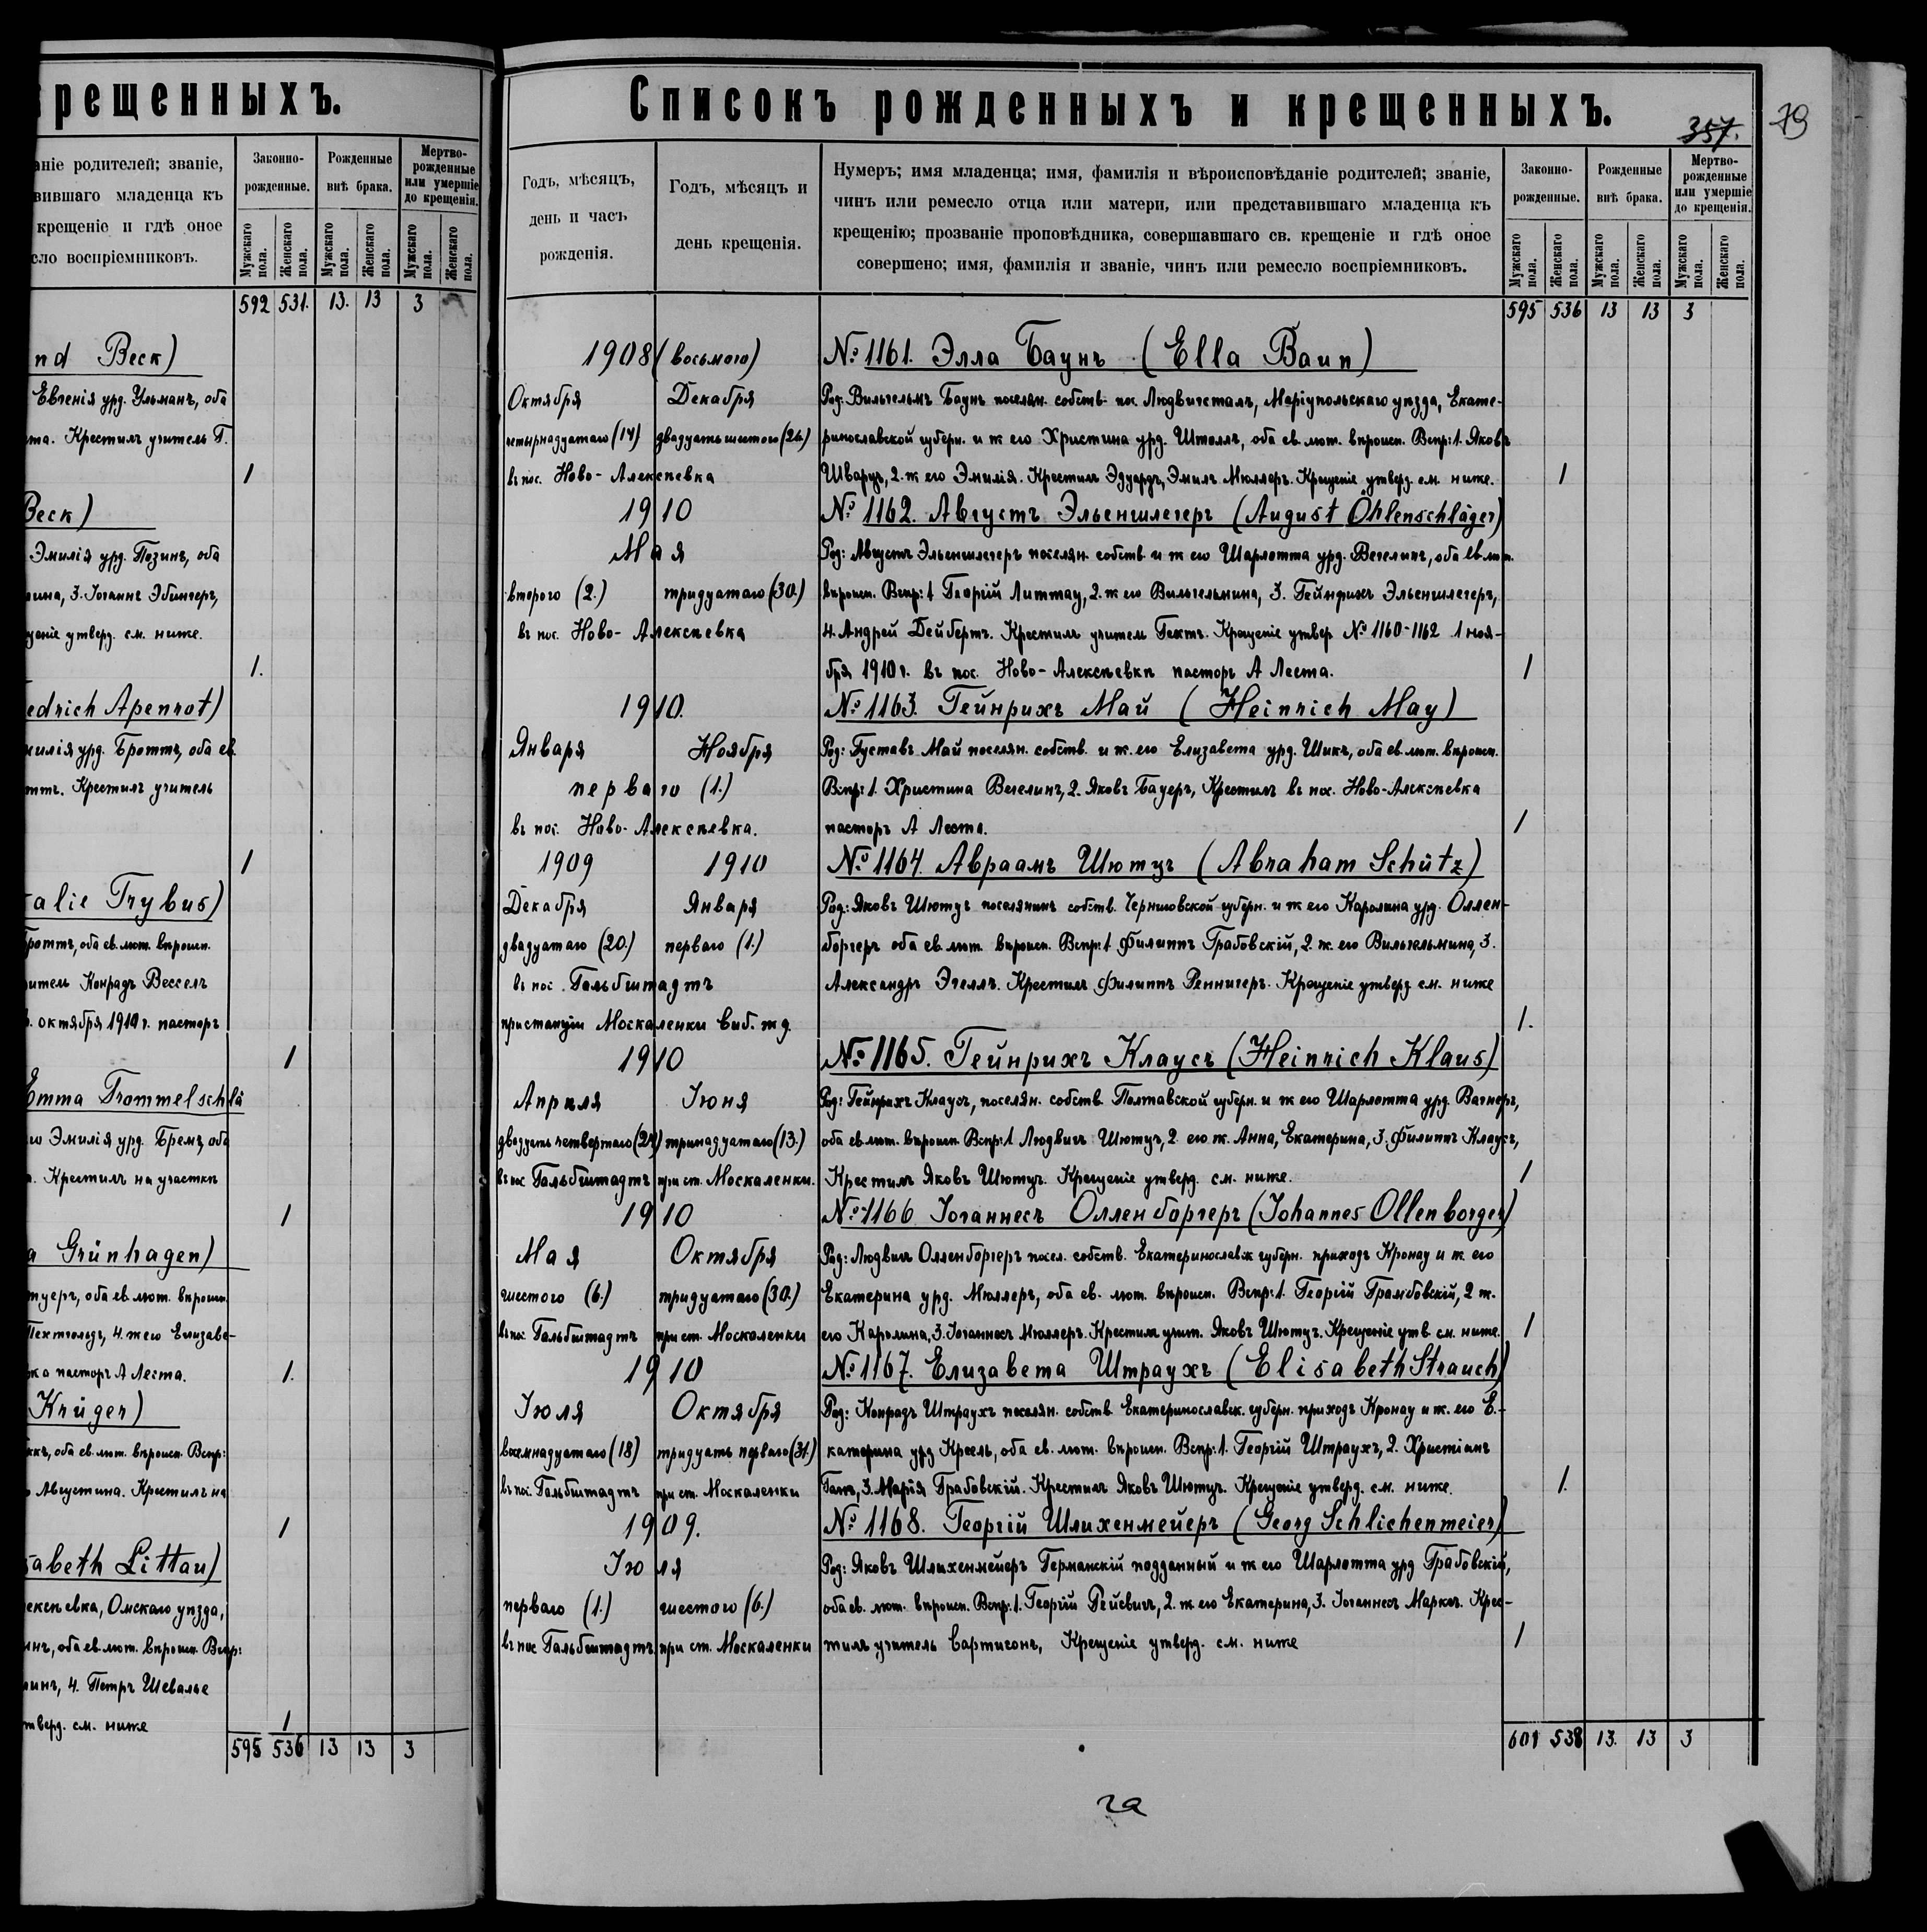 крещенныхъ.
аніе родителей; званіе,
вившаго младенца къ
крещеніе и гдѣ оное
сло воспріемниковъ.
Законно-рожденные.
Рожденные внѣ брака.
Мертво-рожденные или умершіе до крещенія.
Мужскаго пола.
Женскаго пола.
Мужскаго пола.
Женскаго пола.
Мужскаго пола.
Женскаго пола.
592 531. 13. 13 3
nd Beck)
Евгенія урд. Ульманъ, оба
та. Крестилъ учитель Г.
1
Beck)
Эмилія урд. Позинъ, оба
лина, 3. Іоганнъ Эбингеръ,
щеніе утверд. см. ниже.
1.
edrich Apenrot)
милія урд. Броттъ, оба ев.
оттъ. Крестилъ учитель
1
talie Trybus)
Броттъ, оба ев. лют. вѣроисп.
учитель Конрадъ Вессель
октября 1910 г. пасторъ
1
Emma Trommelschlä
го Эмилія урд. Бремъ, оба
Крестилъ на участкѣ
1
a Grünhagen)
туеръ, оба ев. лют. вѣроисп.
Пехтгольдъ, 4. ж его Елизаве-
ка пасторъ А Леста.
1.
Krüger)
ккъ, оба ев. лют. вѣроисп. Вспр:
Августина. Крестилъ на
1
sabeth Littau)
ексѣевка, Омскаго уѣзда,
инъ, оба ев. лют. вѣроисп. Вспр:
линъ, 4. Петръ Шевалье
тверд. см. ниже
1
595 536 13 13 3
Списокъ рожденныхъ и крещенныхъ.
357. 79
Годъ, мѣсяцъ, день и часъ рожденія.
Годъ, мѣсяцъ и день крещенія.
Нумеръ; имя младенца; имя, фамилія и вѣроисповѣданіе родителей; званіе,
чинъ или ремесло отца или матери, или представившаго младенца къ
крещенію; прозваніе проповѣдника, совершавшаго св. крещеніе и гдѣ оное
совершено; имя, фамилія и званіе, чинъ или ремесло воспріемниковъ.
Законно-рожденные.
Рожденные внѣ брака.
Мертво-рожденные или умершіе до крещенія.
Мужскаго пола.
Женскаго пола.
Мужскаго пола.
Женскаго пола.
Мужскаго пола.
Женскаго пола.
595 536 13 13 3
1908 (восьмого) № 1161. Элла Баунъ (Ella Baun)
Октября Декабря Род. Вильгельмъ Баунъ поселян. собств. пос. Людвигсталъ, Маріупольскаго уѣзда, Екате-
четырнадцатаго (14) двадцать шестого (26.) ринославской губерн. и ж его Христина урд. Штолль, оба ев. лют. вѣроисп. Вспр: 1. Яковъ
въ пос. Ново-Алексѣевка Шварцъ, 2. ж его Эмилія. Крестилъ Эдуардъ, Эмиль Мюллеръ. Крещеніе утверд. см. ниже. 1
1910 № 1162. Августъ Эльеншлегеръ (August Öhlenschläger)
Мая Род: Августъ Эльеншлегеръ поселян. собств. и ж его Шарлотта урд. Вегелинъ, оба ев. лют.
второго (2.) тридцатаго (30.) вѣроисп. Вспр: 1 Георгій Литтау, 2. ж его Вильгельмина, 3. Гейнрихъ Эльеншлегеръ,
въ пос. Ново-Алексѣевка 4. Андрей Дейбертъ. Крестилъ учитель Гехтъ. Крещеніе утвер № 1160-1162 1 ноя-
бря 1910 г. въ пос. Ново-Алексѣевкѣ пасторъ А Леста. 1
1910. № 1163. Гейнрихъ Май (Heinrich May)
Января Ноября Род: Густавъ Май поселян. собств. и ж. его Елизавета урд. Шикъ, оба ев. лют. вѣроисп.
перваго (1.) Вспр: 1. Христина Вегелинъ, 2. Яковъ Бауеръ, Крестилъ въ пос. Ново-Алексѣевка
въ пос. Ново-Алексѣевка. пасторъ А Леста. 1
1909 1910 № 1164. Авраамъ Шютцъ (Abraham Schütz)
Декабря Января Род: Яковъ Шютцъ поселянинъ собств. Черниговской губерн. и ж его Каролина урд. Оллен-
двадцатаго (20.) перваго (1.) боргеръ оба ев. лют. вѣроисп. Вспр: 1 Филиппъ Грабовскій, 2. ж. его Вильгельмина, 3.
въ пос. Гальбштадтъ Александръ Эгелль. Крестилъ Филиппъ Реннигеръ. Крещеніе утверд см. ниже
при станціи Москаленки Сиб. ж д. 1.
1910 № 1165. Гейнрихъ Клаусъ (Heinrich Klaus)
Апрѣля Іюня Род: Гейнрихъ Клаусъ, поселян. собств. Полтавской губерн. и ж его Шарлотта урд. Вагнеръ,
двадцать четвертаго (24) тринадцатаго (13.) оба ев. лют. вѣроисп. Вспр: 1 Людвигъ Шютцъ, 2. его ж. Анна, Екатерина, 3. Филиппъ Клаусъ,
въ пос. Гальбштадтъ при ст. Москаленки. Крестилъ Яковъ Шютцъ. Крещеніе утверд. см. ниже. 1
1910 № 1166 Іоганнесъ Олленборгеръ (Johannes Ollenborger)
Мая Октября Род: Людвигъ Олленборгеръ посел. собств. Екатеринославск губерн. приходъ Кронау и ж. его
шестого (6.) тридцатаго (30.) Екатерина урд. Мюллеръ, оба ев. лют. вѣроисп. Вспр: 1. Георгій Грамбовскій, 2 ж.
въ пос Гальбштадтъ при ст. Москаленки его Каролина, 3. Іоганнесъ Мюллеръ. Крестилъ учит. Яковъ Шютцъ. Крещеніе утв см. ниже. 1
1910 № 1167. Елизавета Штраухъ (Elisabeth Strauch)
Іюля Октября Род: Конрадъ Штраухъ поселян. собств. Екатеринославск. губерн. приходъ Кронау и ж. его Е-
восемнадцатаго (18) тридцать перваго (31.) катерина урд Кресль, оба ев. лют. вѣроисп. Вспр: 1. Георгій Штраухъ, 2. Христіанъ
въ пос. Гальбштадтъ при ст. Москаленки 3. Марія Грабовскій. Крестилъ Яковъ Шютцъ. Крещеніе утверд. см. ниже. 1.
1909. № 1168. Георгій Шлихенмейеръ (Georg Schlichenmeier)
Іюля Род: Яковъ Шлихенмейеръ Германскій подданный и ж его Шарлотта урд Грабовскій,
перваго (1.) шестого (6.) оба ев. лют. вѣроисп. Вспр: 1. Георгій Рейсвигъ, 2. ж его Екатерина, 3. Іоганнесъ Маркъ. Крес-
въ пос Гальбштадтъ при ст. Москаленки тилъ учитель Сартисонъ, Крещеніе утверд. см. ниже 1
601 538 13. 13 3